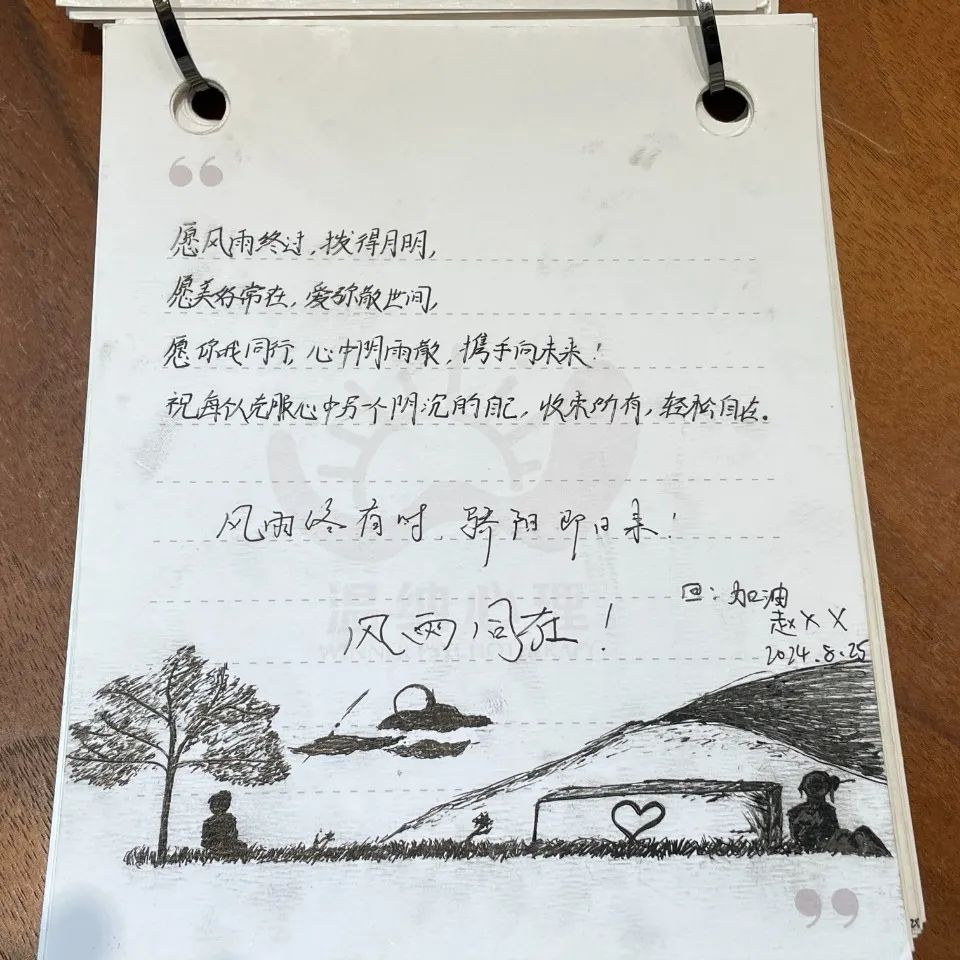 愿风雨终过,拨得月明,
愿美好常在,爱弥散世间,
愿你我同行,心中阴雨散,携手向未来!
祝每个人克服心中另一个阴沉的自己,收束所有,轻松自在。
风雨终有时,骄阳即日来!
风雨同在!
回:加油
赵XX
2024.8.25
温纳心理